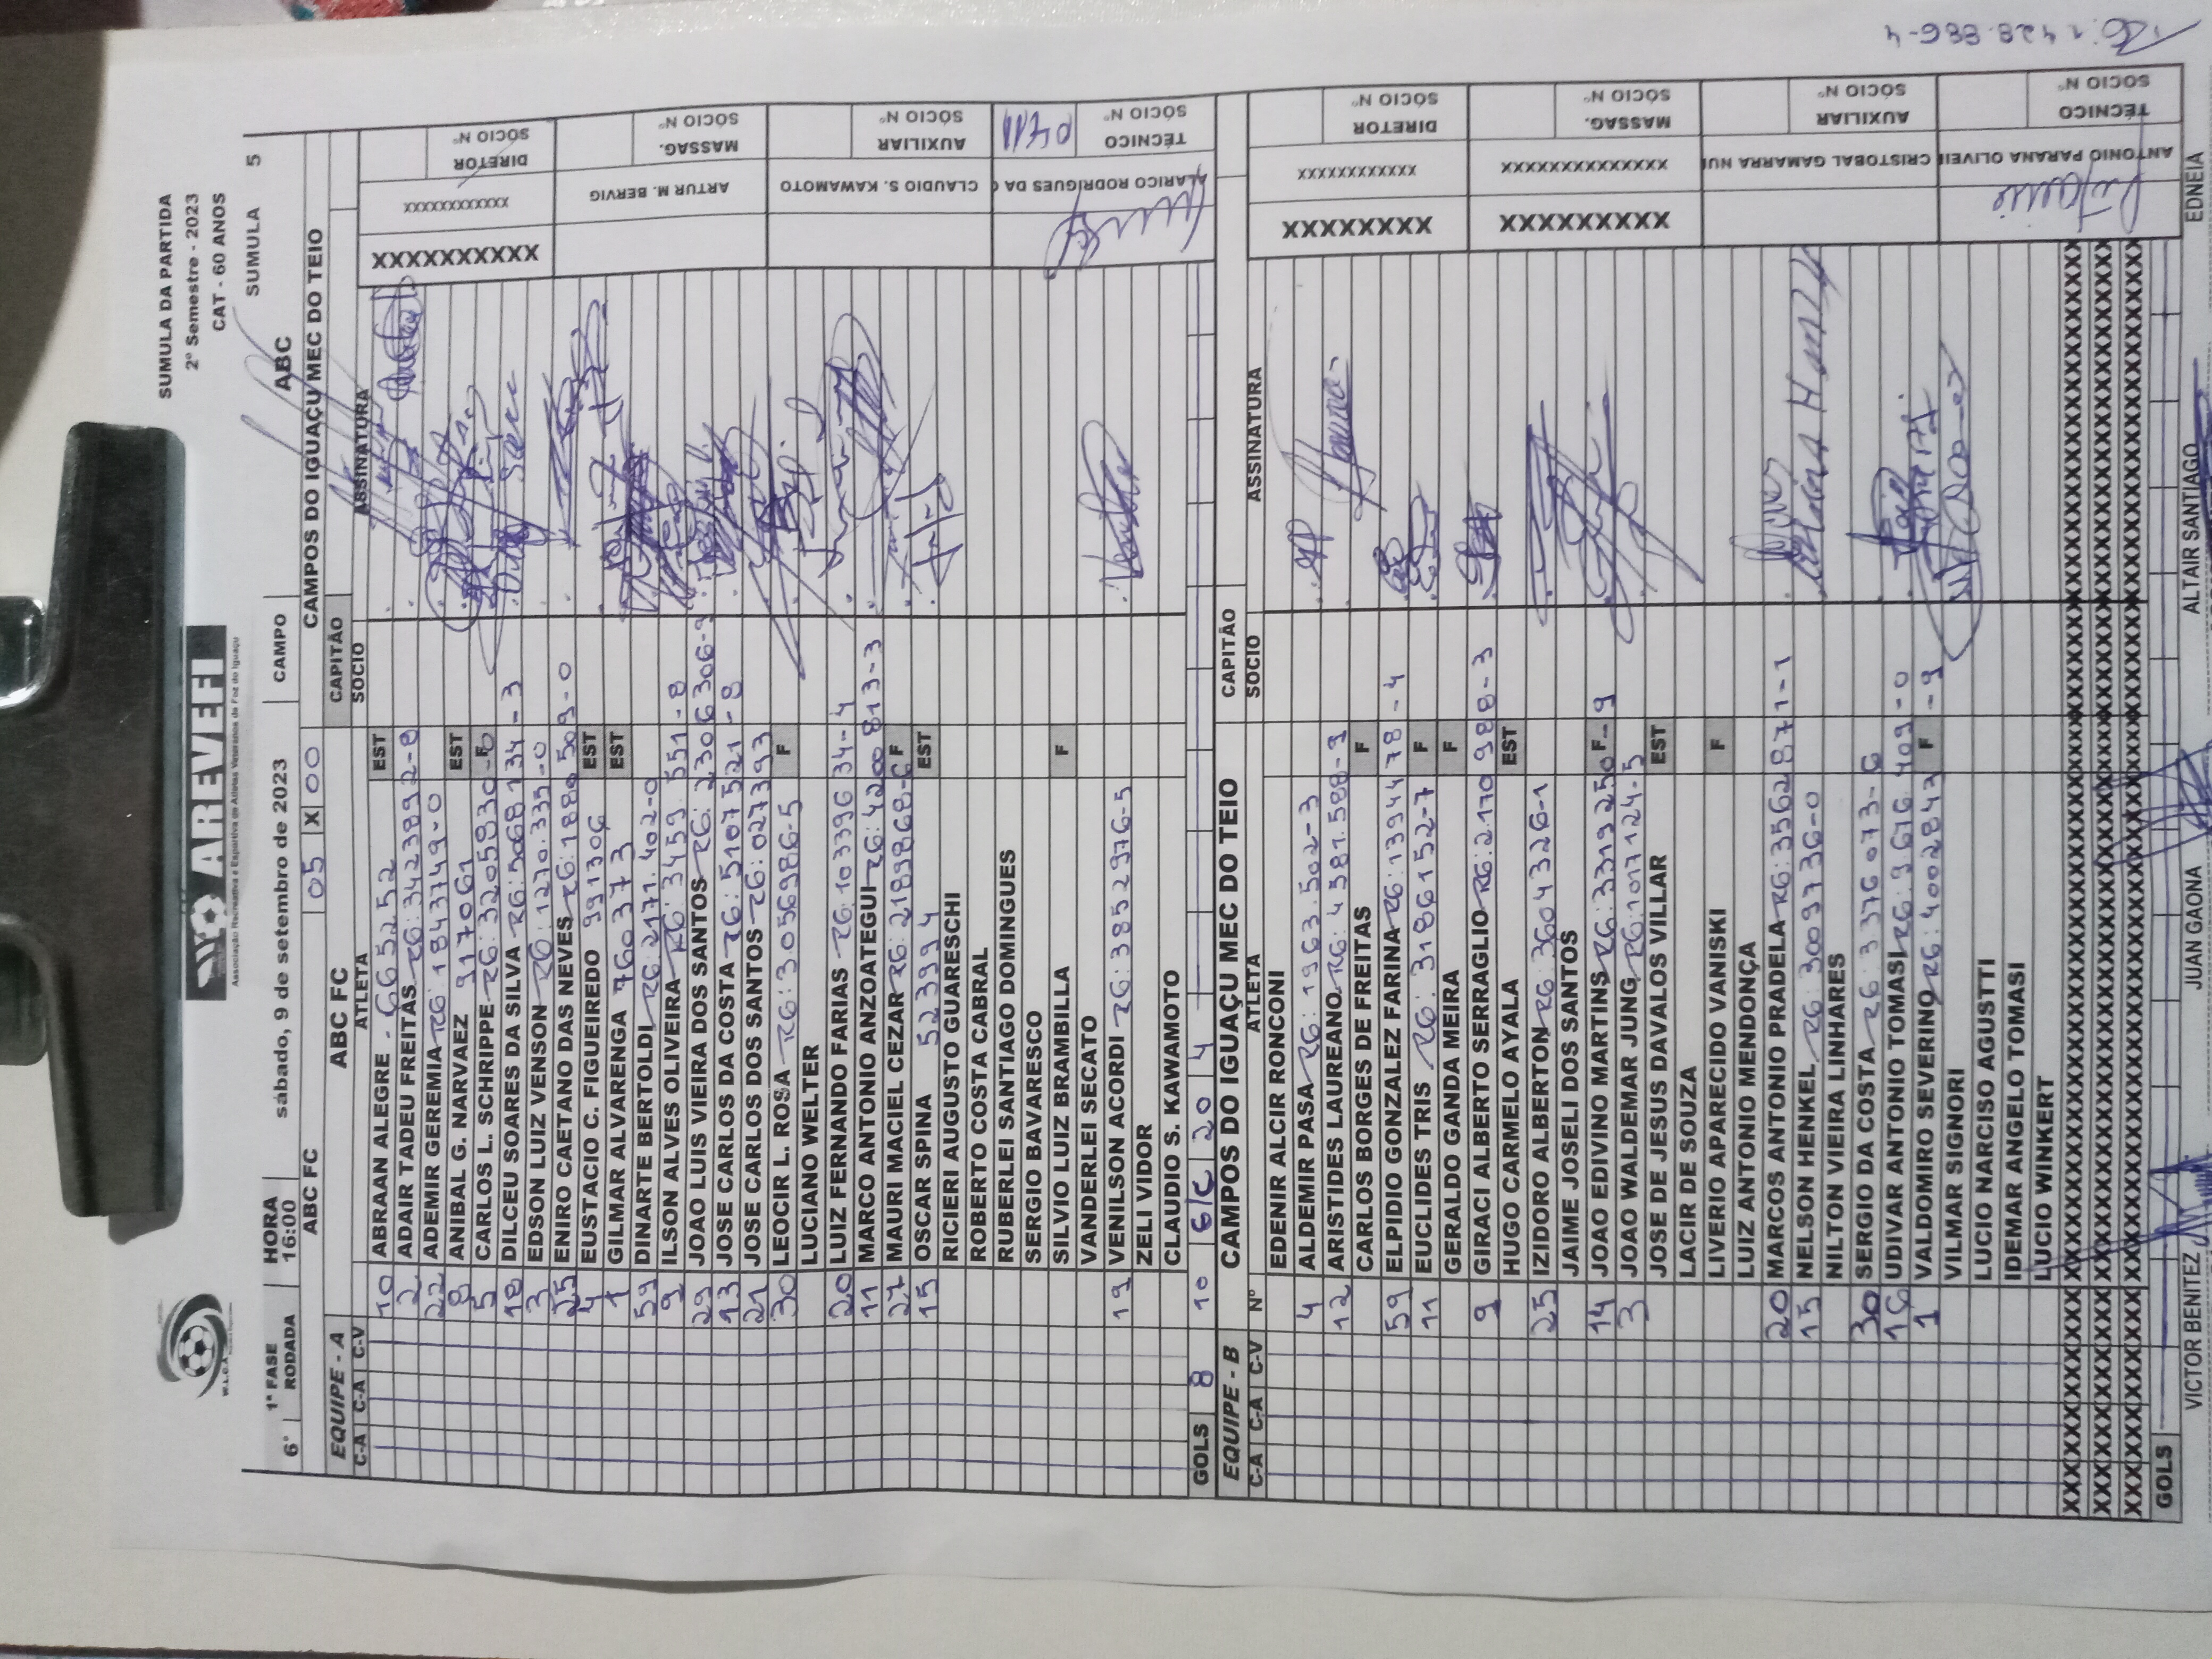 SUMULA DA PARTIDA
2º Semestre - 2023
CAT - 60 ANOS
W.L.O.A.
AREVEFI
Associação Recreativa e Esportiva de Atletas Veteranos de Foz do Iguaçu
6ª 1ª FASE RODADA HORA 16:00 sábado, 9 de setembro de 2023 CAMPO ABC SUMULA 5
ABC FC 05 X 00 CAMPOS DO IGUAÇU MEC DO TEIO
EQUIPE - A ABC FC CAPITÃO
C-A C-A C-V ATLETA SOCIO ASSINATURA
10 ABRAAN ALEGRE - 665252 EST
2 ADAIR TADEU FREITAS RG: 3423892-8
22 ADEMIR GEREMIA RG: 1843749-0
8 ANIBAL G. NARVAEZ 917061 EST
5 CARLOS L. SCHRIPPE RG: 3205930-0 F
18 DILCEU SOARES DA SILVA RG: 5068134-3
3 EDSON LUIZ VENSON RG: 1270.335-0
25 ENIRO CAETANO DAS NEVES RG: 1880509-0
4 EUSTACIO C. FIGUEIREDO 991306 EST
1 GILMAR ALVARENGA 760373 EST
59 DINARTE BERTOLDI RG: 2171.402-0
9 ILSON ALVES OLIVEIRA RG: 3459.551-8
29 JOAO LUIS VIEIRA DOS SANTOS RG: 2306306-9
13 JOSE CARLOS DA COSTA RG: 5107521-8
21 JOSE CARLOS DOS SANTOS RG: 0277393
30 LEOCIR L. ROSA RG: 3056986-5 F
LUCIANO WELTER
20 LUIZ FERNANDO FARIAS RG: 10339634-4
11 MARCO ANTONIO ANZOATEGUI RG: 4200813-3
27 MAURI MACIEL CEZAR RG: 2189868-6 F
15 OSCAR SPINA 523994 EST
RICIERI AUGUSTO GUARESCHI
ROBERTO COSTA CABRAL
RUBERLEI SANTIAGO DOMINGUES
SERGIO BAVARESCO
SILVIO LUIZ BRAMBILLA F
VANDERLEI SECATO
19 VENILSON ACORDI RG: 3852976-5
ZELI VIDOR
CLAUDIO S. KAWAMOTO
GOLS 8 10 6/C 20 4
XXXXXXXXXX XXXXXXXXXXX DIRETOR SÓCIO Nº
ARTUR M. BERVIG MASSAG. SÓCIO Nº
CLAUDIO S. KAWAMOTO AUXILIAR SÓCIO Nº
ALARICO RODRIGUES DA TÉCNICO SÓCIO Nº
EQUIPE - B CAMPOS DO IGUAÇU MEC DO TEIO CAPITÃO
C-A C-A C-V Nº ATLETA SOCIO ASSINATURA
EDENIR ALCIR RONCONI
4 ALDEMIR PASA RG: 1963.502-3
12 ARISTIDES LAUREANO RG: 4381.588-3
CARLOS BORGES DE FREITAS F
59 ELPIDIO GONZALEZ FARINA RG: 1394478-4
11 EUCLIDES TRIS RG: 3186152-7 F
GERALDO GANDA MEIRA F
9 GIRACI ALBERTO SERRAGLIO RG: 2170988-3
HUGO CARMELO AYALA EST
25 IZIDORO ALBERTON RG: 3604326-1
JAIME JOSELI DOS SANTOS
14 JOAO EDIVINO MARTINS RG: 3319250-9 F
3 JOAO WALDEMAR JUNG RG: 1017124-5
JOSE DE JESUS DAVALOS VILLAR EST
LACIR DE SOUZA
LIVERIO APARECIDO VANISKI F
LUIZ ANTONIO MENDONÇA
20 MARCOS ANTONIO PRADELA RG: 3562871-1
15 NELSON HENKEL RG: 3009736-0
NILTON VIEIRA LINHARES
30 SERGIO DA COSTA RG: 3376073-6
16 UDIVAR ANTONIO TOMASI RG: 9676409-0
1 VALDOMIRO SEVERINO RG: 4002843-9 F
VILMAR SIGNORI
LUCIO NARCISO AGUSTTI
IDEMAR ANGELO TOMASI
LUCIO WINKERT
GOLS
XXXXXXXX XXXXXXXXXXXX DIRETOR SÓCIO Nº
XXXXXXXXX XXXXXXXXXXXX MASSAG. SÓCIO Nº
CRISTOBAL GAMARRA AUXILIAR SÓCIO Nº
ANTONIO PARANA TÉCNICO SÓCIO Nº
RG: 1.428.886-4
VICTOR BENITEZ JUAN GAONA ALTAIR SANTIAGO EDNEIA